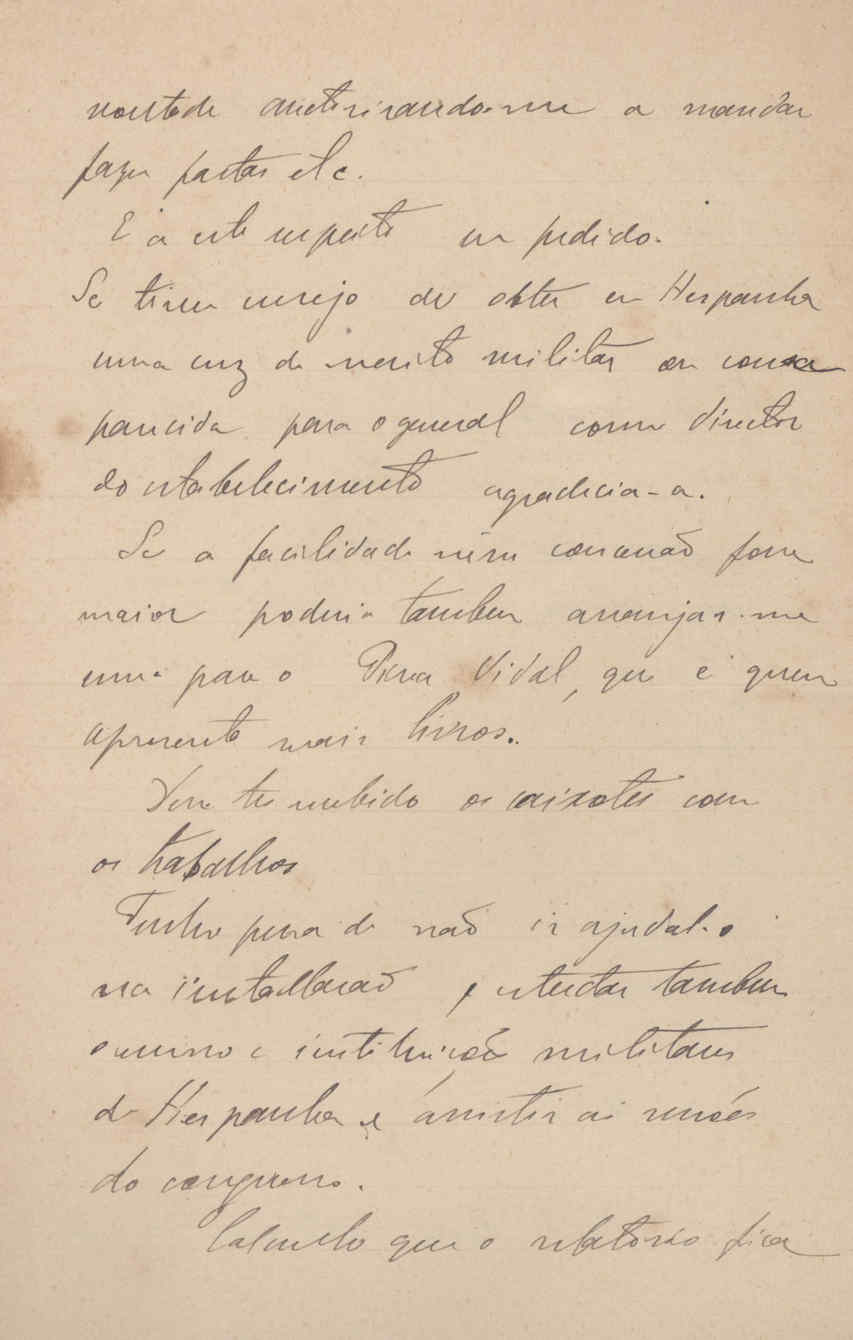 vontade auctorisando-me a mandar
fazer pastas etc.
E' a este respeito um pedido.
Se tiver ensejo de obter em Hespanha
uma cruz de merito militar ou cousa
parecida para o general como director
do estabelecimento agradecia-a.
Se a facilidade n'essa concessão fosse
maior poderia tambem arranjar-me
uma para o Pena Vidal, que é quem
apresenta mais livros.
Deve ter recebido os caixotes com
os trabalhos
Tenho pena de não ir ajudal-o
na installação, e estudar tambem
o ensino e instituições militares
de Hespanha e assistir ás sessões
do congresso.
Calculo que o relatorio fica